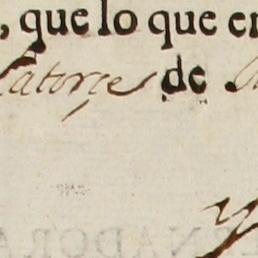 , que lo que en
Catorçe de